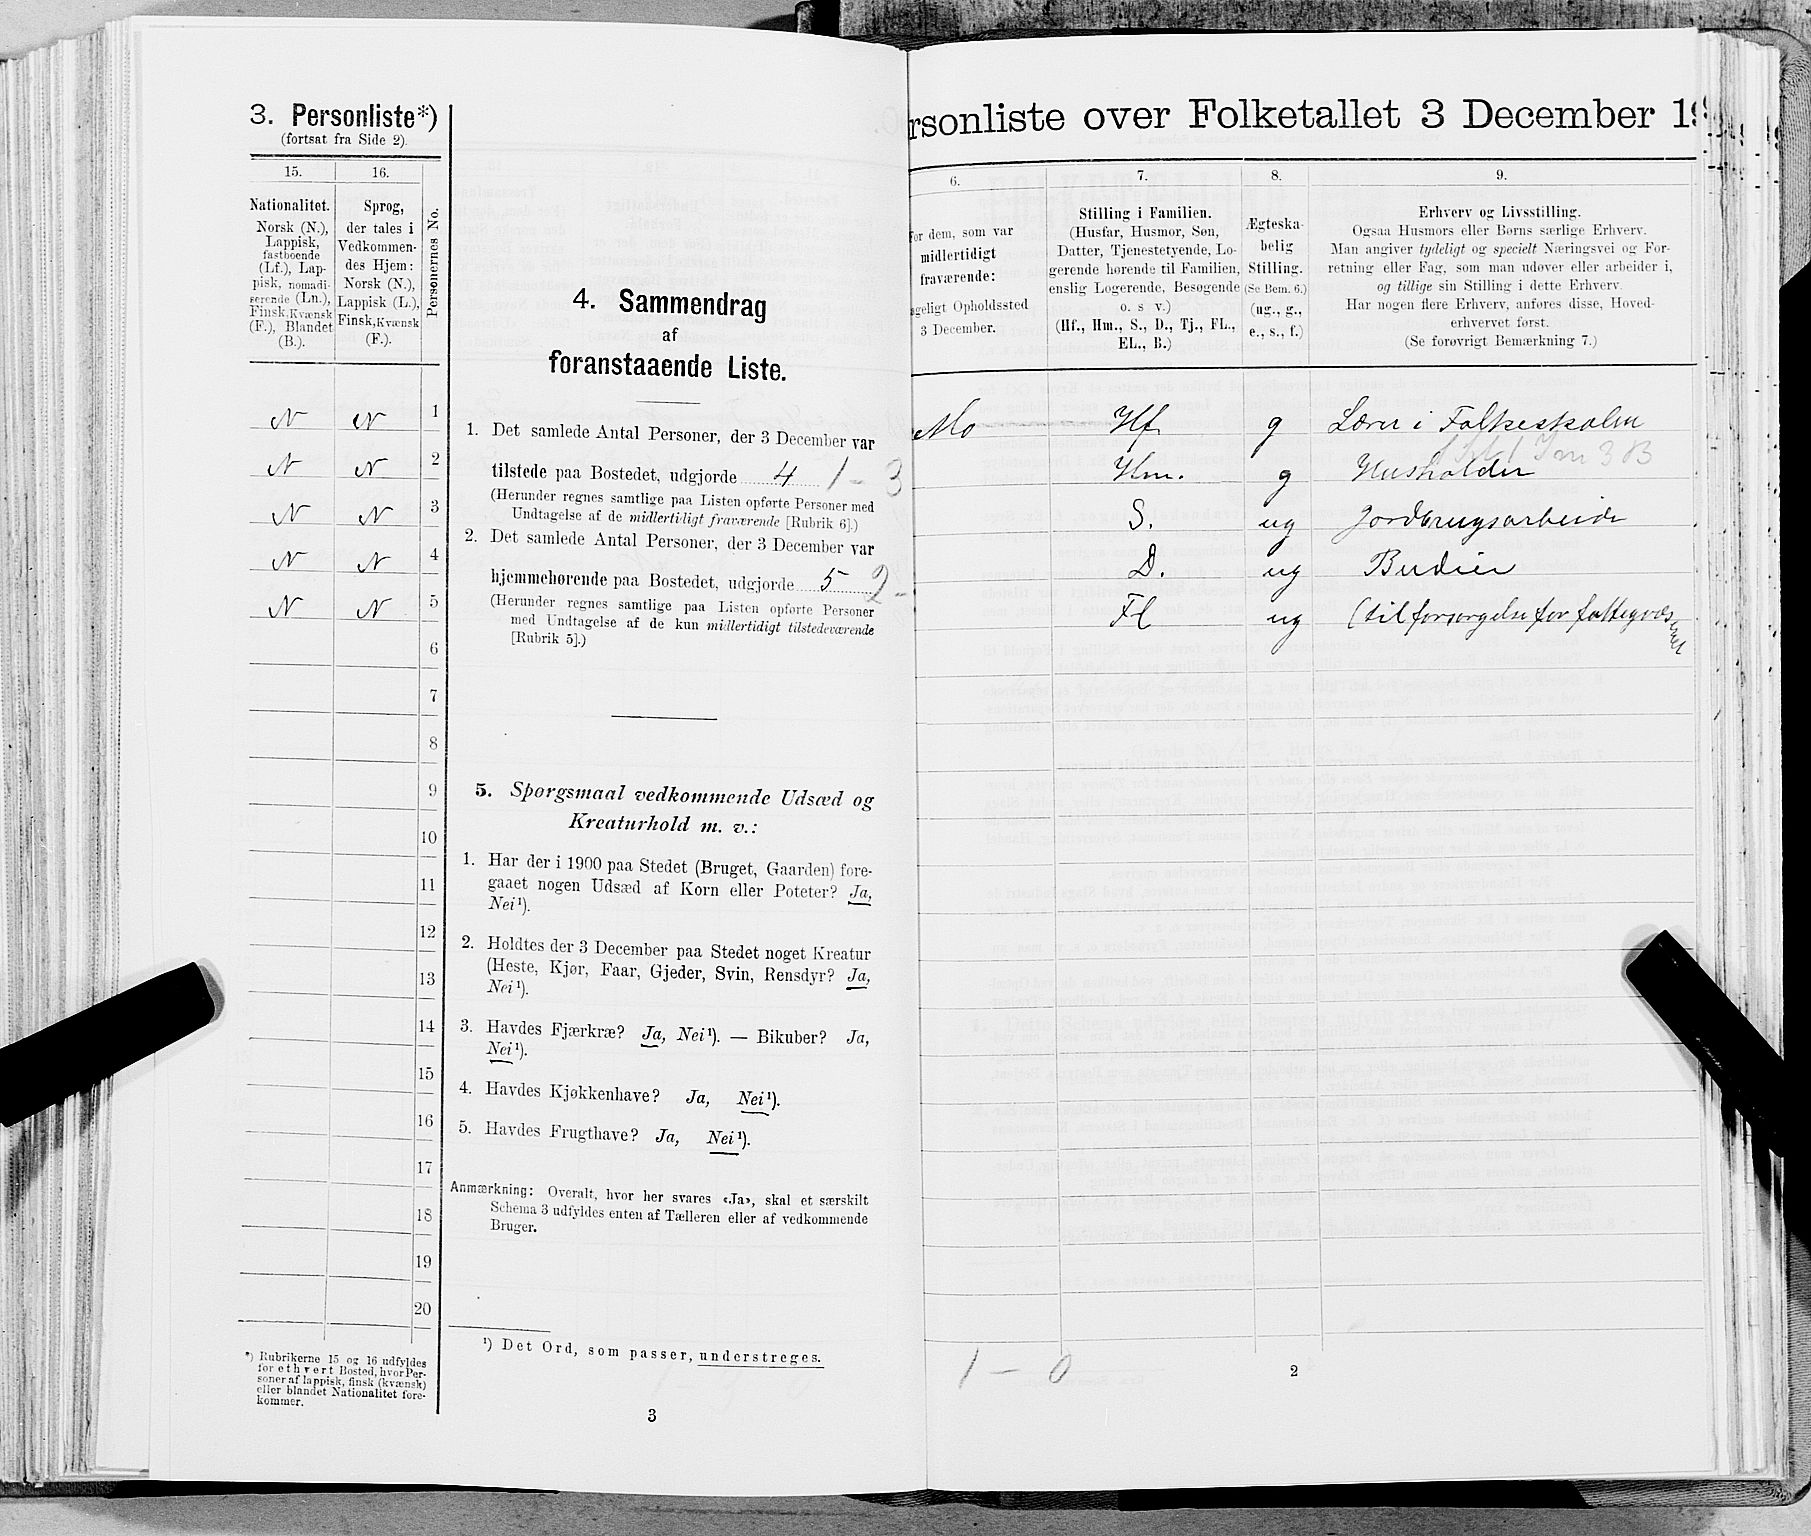 3. Personliste*)
(fortsat fra Side 2).
15.
Nationalitet.
Norsk (N.),
Lappisk,
fastboende
(Lf.), Lap-
pisk, nomadi-
serende (Ln.),
Finsk, Kvænsk
(F.), Blandet
(B.).
16.
Sprog,
der tales i
Vedkommen-
des Hjem:
Norsk (N.),
Lappisk (L.),
Finsk, Kvænsk
(F.).
Personernes No.
N N 1
N N 2
N N 3
N N 4
N N 5
6
7
8
9
10
11
12
13
14
15
16
17
18
19
20
*) Rubrikerne 15 og 16 udfyldes
for ethvert Bosted, hvor Per-
soner af lappisk, finsk (kvænsk)
eller blandet Nationalitet fore-
kommer.
4. Sammendrag
af
foranstaaende Liste.
1. Det samlede Antal Personer, der 3 December var
tilstede paa Bostedet, udgjorde 4 1 - 3
(Herunder regnes samtlige paa Listen opførte Personer med
Undtagelse af de midlertidigt fraværende [Rubrik 6].)
2. Det samlede Antal Personer, der 3 December var
hjemmehørende paa Bostedet, udgjorde 5 2 -
(Herunder regnes samtlige paa Listen opførte Personer
med Undtagelse af de kun midlertidigt tilstedeværende
[Rubrik 5].)
5. Spørgsmaal vedkommende Udsæd og
Kreaturhold m. v.:
1. Har der i 1900 paa Stedet (Bruget, Gaarden) fore-
gaaet nogen Udsæd af Korn eller Poteter? Ja,
Nei¹).
2. Holdtes der 3 December paa Stedet noget Kreatur
(Heste, Kjør, Faar, Gjeder, Svin, Rensdyr? Ja,
Nei¹).
3. Havdes Fjærkræ? Ja, Nei¹). — Bikuber? Ja,
Nei¹).
4. Havdes Kjøkkenhave? Ja, Nei¹).
5. Havdes Frugthave? Ja, Nei¹).
Anmærkning: Overalt, hvor her svares «Ja», skal et særskilt
Schema 3 udfyldes enten af Tælleren eller af vedkommende
Bruger.
¹) Det Ord, som passer, understreges.
3
rsonliste over Folketallet 3 December 19
6.
for dem, som var
midlertidigt
fraværende:
geligt Opholdssted
3 December.
7.
Stilling i Familien.
(Husfar, Husmor, Søn,
Datter, Tjenestetyende, Lo-
gerende hørende til Familien,
enslig Logerende, Besøgende
o. s v.)
(Hf., Hm., S., D., Tj., FL.,
EL., B.)
8.
Ægteska-
belig
Stilling.
(Se Bem. 6.)
(ug., g.,
e., s., f.)
9.
Erhverv og Livsstilling.
Ogsaa Husmors eller Børns særlige Erhverv.
Man angiver tydeligt og specielt Næringsvei og For-
retning eller Fag, som man udøver eller arbeider i,
og tillige sin Stilling i dette Erhverv.
Har nogen flere Erhverv, anføres disse, Hoved-
erhvervet først.
(Se forøvrigt Bemærkning 7.)
Mo Hf. g Lærer i Folkeskolen
Hm. g Husholder
S. ug Jordbrugsarbeide
D. ug Budeie
Fl ug (til forsørgelse for fattigvæs
enet
1 - 0
2